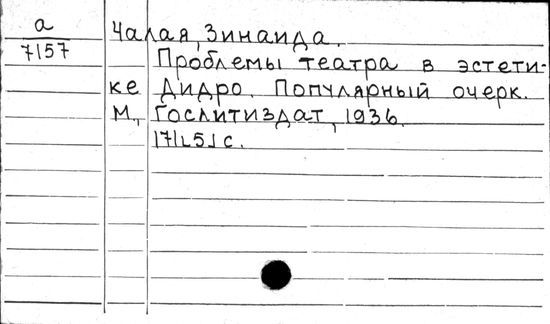 а
7157
Чалая, Зинаида.
Проблемы театра в эстети-
ке Дидро. Популярный очерк.
М., Гослитиздат, 1936.
171[5] с.